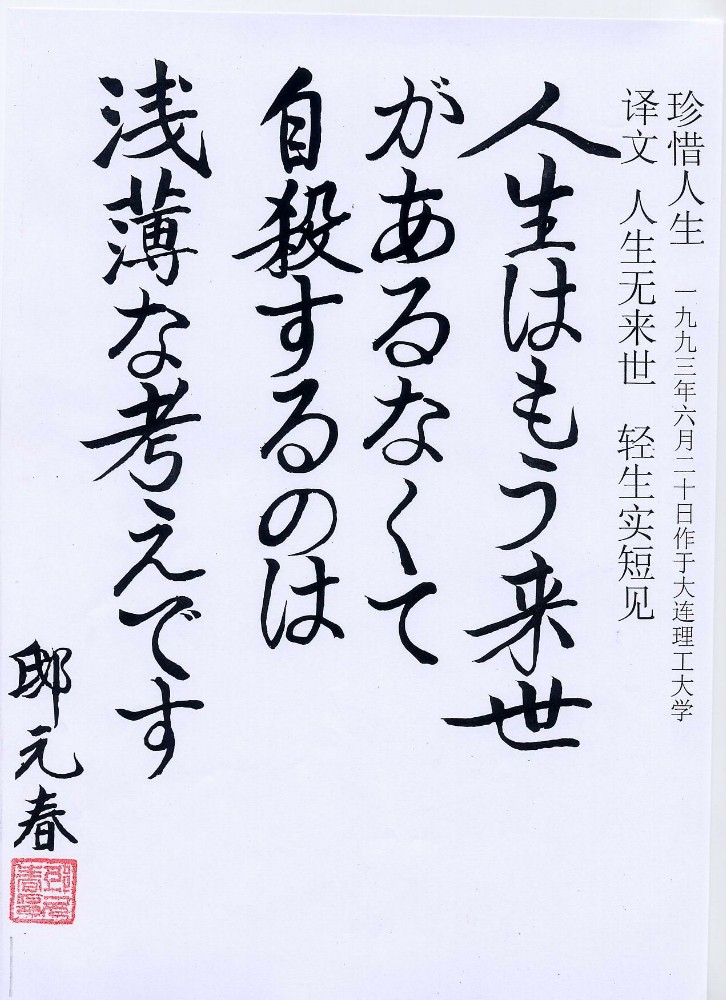 珍惜人生 一九九三年六月二十日作于大连理工大学
译文 人生无来世 轻生实短见
人生はもう来世
があるなくて
自殺するのは
浅薄な考えです
邸元春